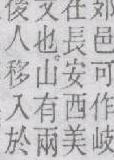 郊邑可作岐
在長安西美
文也山有兩
後人移入於